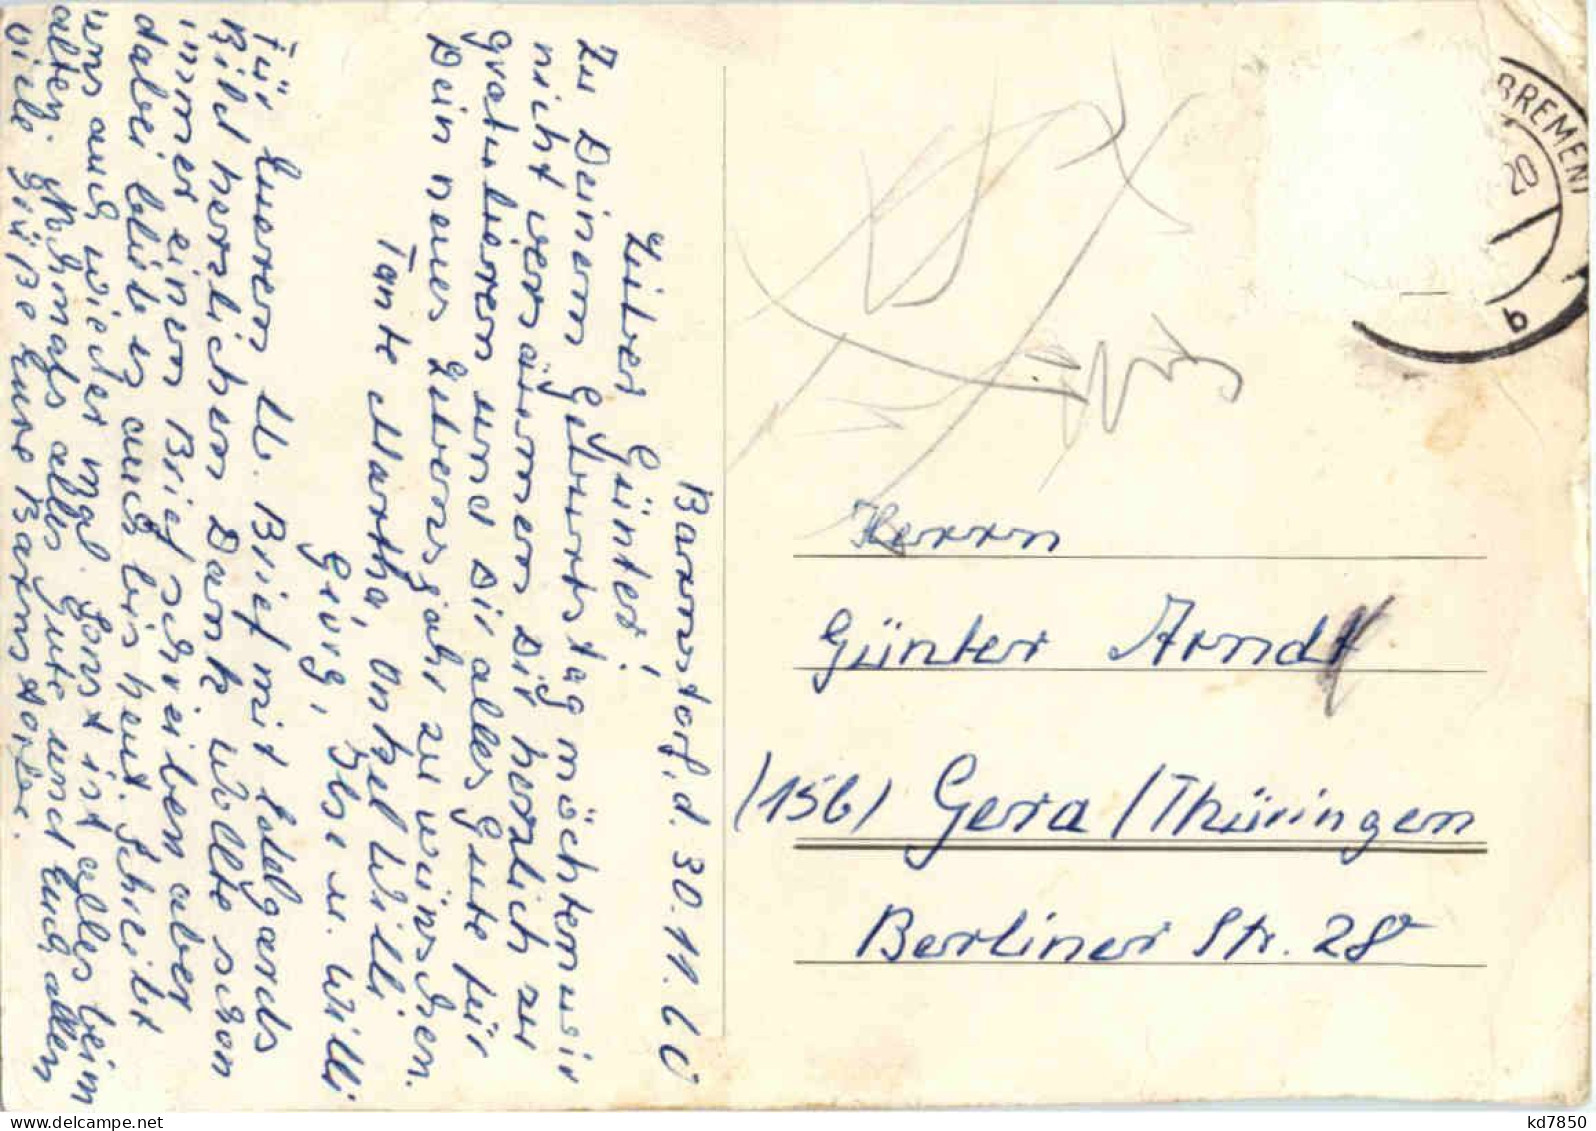 Barnstorf, d. 30.11.60
Lieber Günter!
Zu Deinem Geburtstag möchten wir
nicht versäumen dir herzlich zu
gratulieren und dir alles Gute für
Dein neues Lebensjahr zu wünschen.
Tante Martha, Onkel Willi
Georg, Ilse u. Willi
Für Eueren lb. Brief mit Edelgards
Bild herzlichen Dank wollte schon
immer einen Brief schreiben aber
dabei blieb es auch bis heut. Schreibt
uns auch wieder mal. Sonst ist alles beim
alten. Nochmals alles Gute und Euch allen
viele Grüße Eure Barnstorfer.
BREMEN
20
b
Herrn
Günter Arndt
(15b) Gera / Thüringen
Berliner Str. 28
kd7850